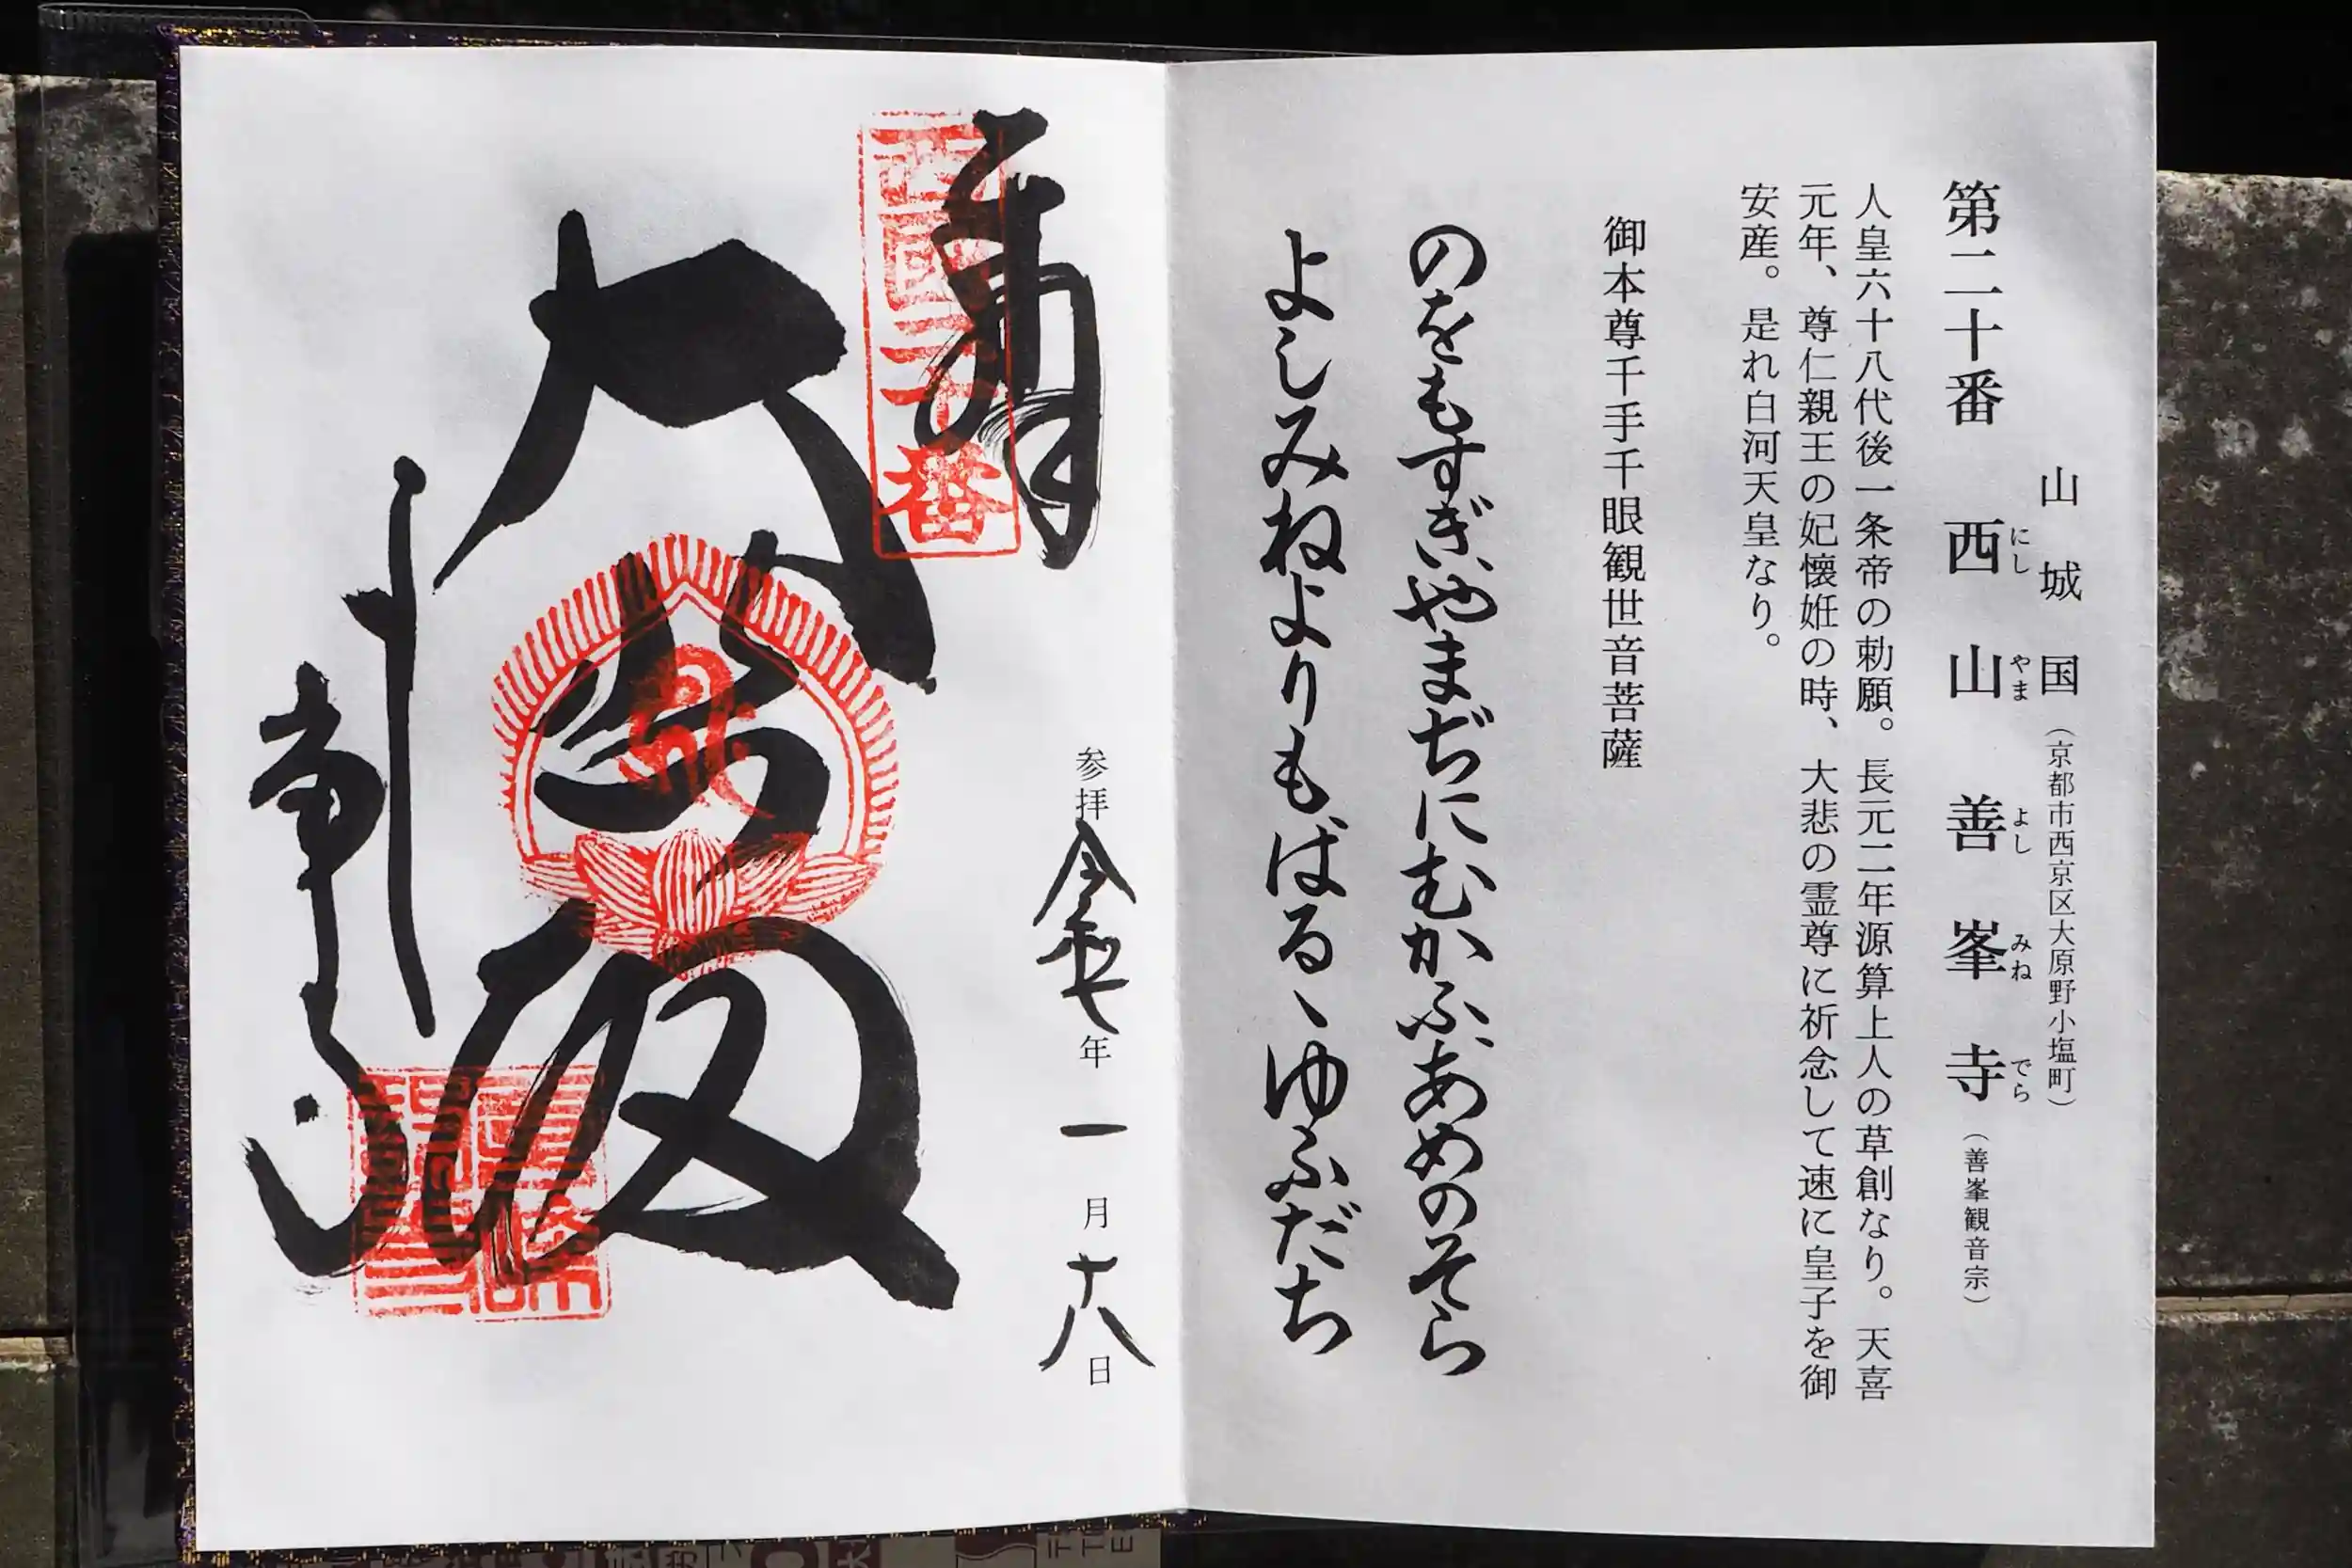 山城国（京都市西京区大原野小塩町）
第二十番 西山 善峯寺（善峯観音宗）
にし やま よし みね でら
人皇六十八代後一条帝の勅願。長元二年源算上人の草創なり。天喜
元年、尊仁親王の妃懐姙の時、大悲の霊尊に祈念して速に皇子を御
安産。是れ白河天皇なり。
御本尊千手千眼観世音菩薩
のをもすぎやまぢにむかふあめのそら
よしみねよりもばるゝゆふだち
奉拝
西国二十番
参拝令和七年一月十八日
大悲殿
善峯寺